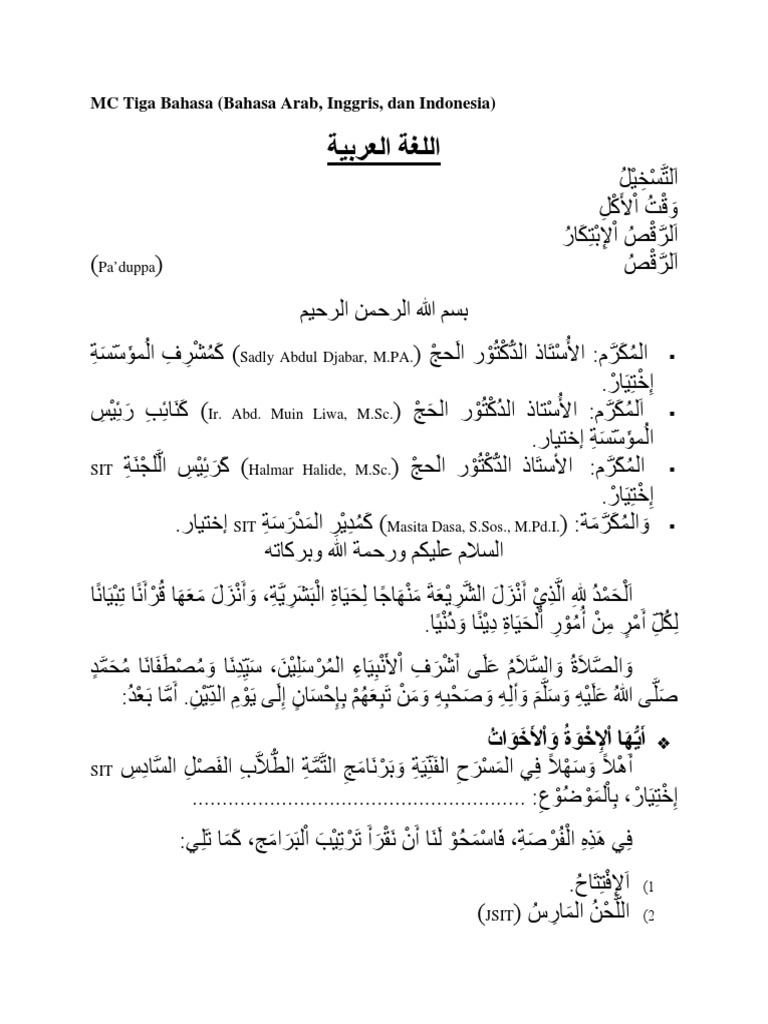 MC Tiga Bahasa (Bahasa Arab, Inggris, dan Indonesia)
اللغة العربية
اَلتَّسْخِيْلُ
وَقْتُ اْلأَكْلِ
اَلرَّقْصُ اْلإِبْتِكَارُ
اَلرَّقْصُ (Pa’duppa)
بسم الله الرحمن الرحيم
▪ المُكَرَّم: الأُسْتَاذ الدُّكْتُوْر الَحجْ (Sadly Abdul Djabar, M.PA.) كَمُشْرِفِ اْلُمؤَسّسَةِ
إِخْتِيَارْ.
▪ اَلمُكَرَّم: الأُسْتاذ الدُكْتُوْر الَحَجْ (Ir. Abd. Muin Liwa, M.Sc.) كَنَائِبِ رَئِيْسِ
اْلُمؤَسّسَةِ إختيار.
▪ المُكَرَّم: الأستَاذ الدُّكْتُوْر الَحجْ (Halmar Halide, M.Sc.) كَرَئِيْسِ اللَّجْنَةِ SIT
إِخْتِيَارْ.
▪ وَالمُكَرَّمَة: (Masita Dasa, S.Sos., M.Pd.I.) كَمُدِيْرِ المَدْرَسَةِ SIT إختيار.
السلام عليكم ورحمة الله وبركاته
اَلْحَمْدُ لِلهِ الَّذِيْ أَنْزَلَ الشَّرِيْعَةَ مَنْهَاجًا لِحَيَاةِ الْبَشَرِيَّةِ، وَأَنْزَلَ مَعَهَا قُرْأَنًا تِبْيَانًا
لِكُلِّ أَمْرٍ مِنْ أُمُوْرِ اْلَحيَاةِ دِيْنًا وَدُنْيًا.
وَالصَّلاَةُ وَالسَّلاَمُ عَلَى أَشْرَفِ اْلأَنْبِيَاءِ المُرْسَلِيْنَ، سَيِّدِنَا وَمُصْطَفَانَا مُحَمَّدٍ
صَلَّى اللهُ عَلَيْهِ وَسَلَّمَ وَألِهِ وَصَحْبِهِ وَمَنْ تَبِعَهُمْ بِإِحْسَانٍ إِلَى يَوْمِ الدِّيْنِ. أَمَّا بَعْدُ:
❖ أَيُّهَا اْلإِخْوَةُ وَاْلأَخَوَاتُ
أَهْلاً وَسَهْلاً فِي المَسْرَحِ الفَنِّيَةِ وَبَرْنَامَجِ التَّمَّةِ الطُّلَّابِ الفَصْلِ السَّادِسِ SIT
إِخْتِيَارْ، بِاْلمَوْضُوْعِ: ........................................................
فِي هَذِهِ الْفُرْصَةِ، فَاسْمَحُوْ لَنَا أَنْ نَقْرَأَ تَرْتِيْبَ اْلبَرَامَج، كَمَا تَلِي:
1) اَلإِفْتِتَاحُ.
2) اللَّحْنُ المَارِسُ (JSIT)